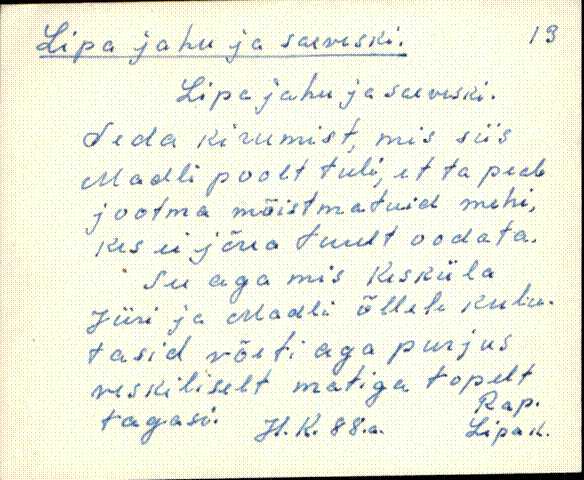 Lipa jahu ja saeveski. 13
Lipa jahu ja saeveski.
Seda kirumist, mis siis
Madli poolt tuli, et ta peab
jootma mõistmatuid mehi,
kes ei jõua tuult oodata.
See aga mis Kesküla
Jüri ja Madli õllele kulu-
tasid võeti aga purjus
veskiliselt matiga topelt
tagasi. H.K. 88.a. Rap.
Lipa k.